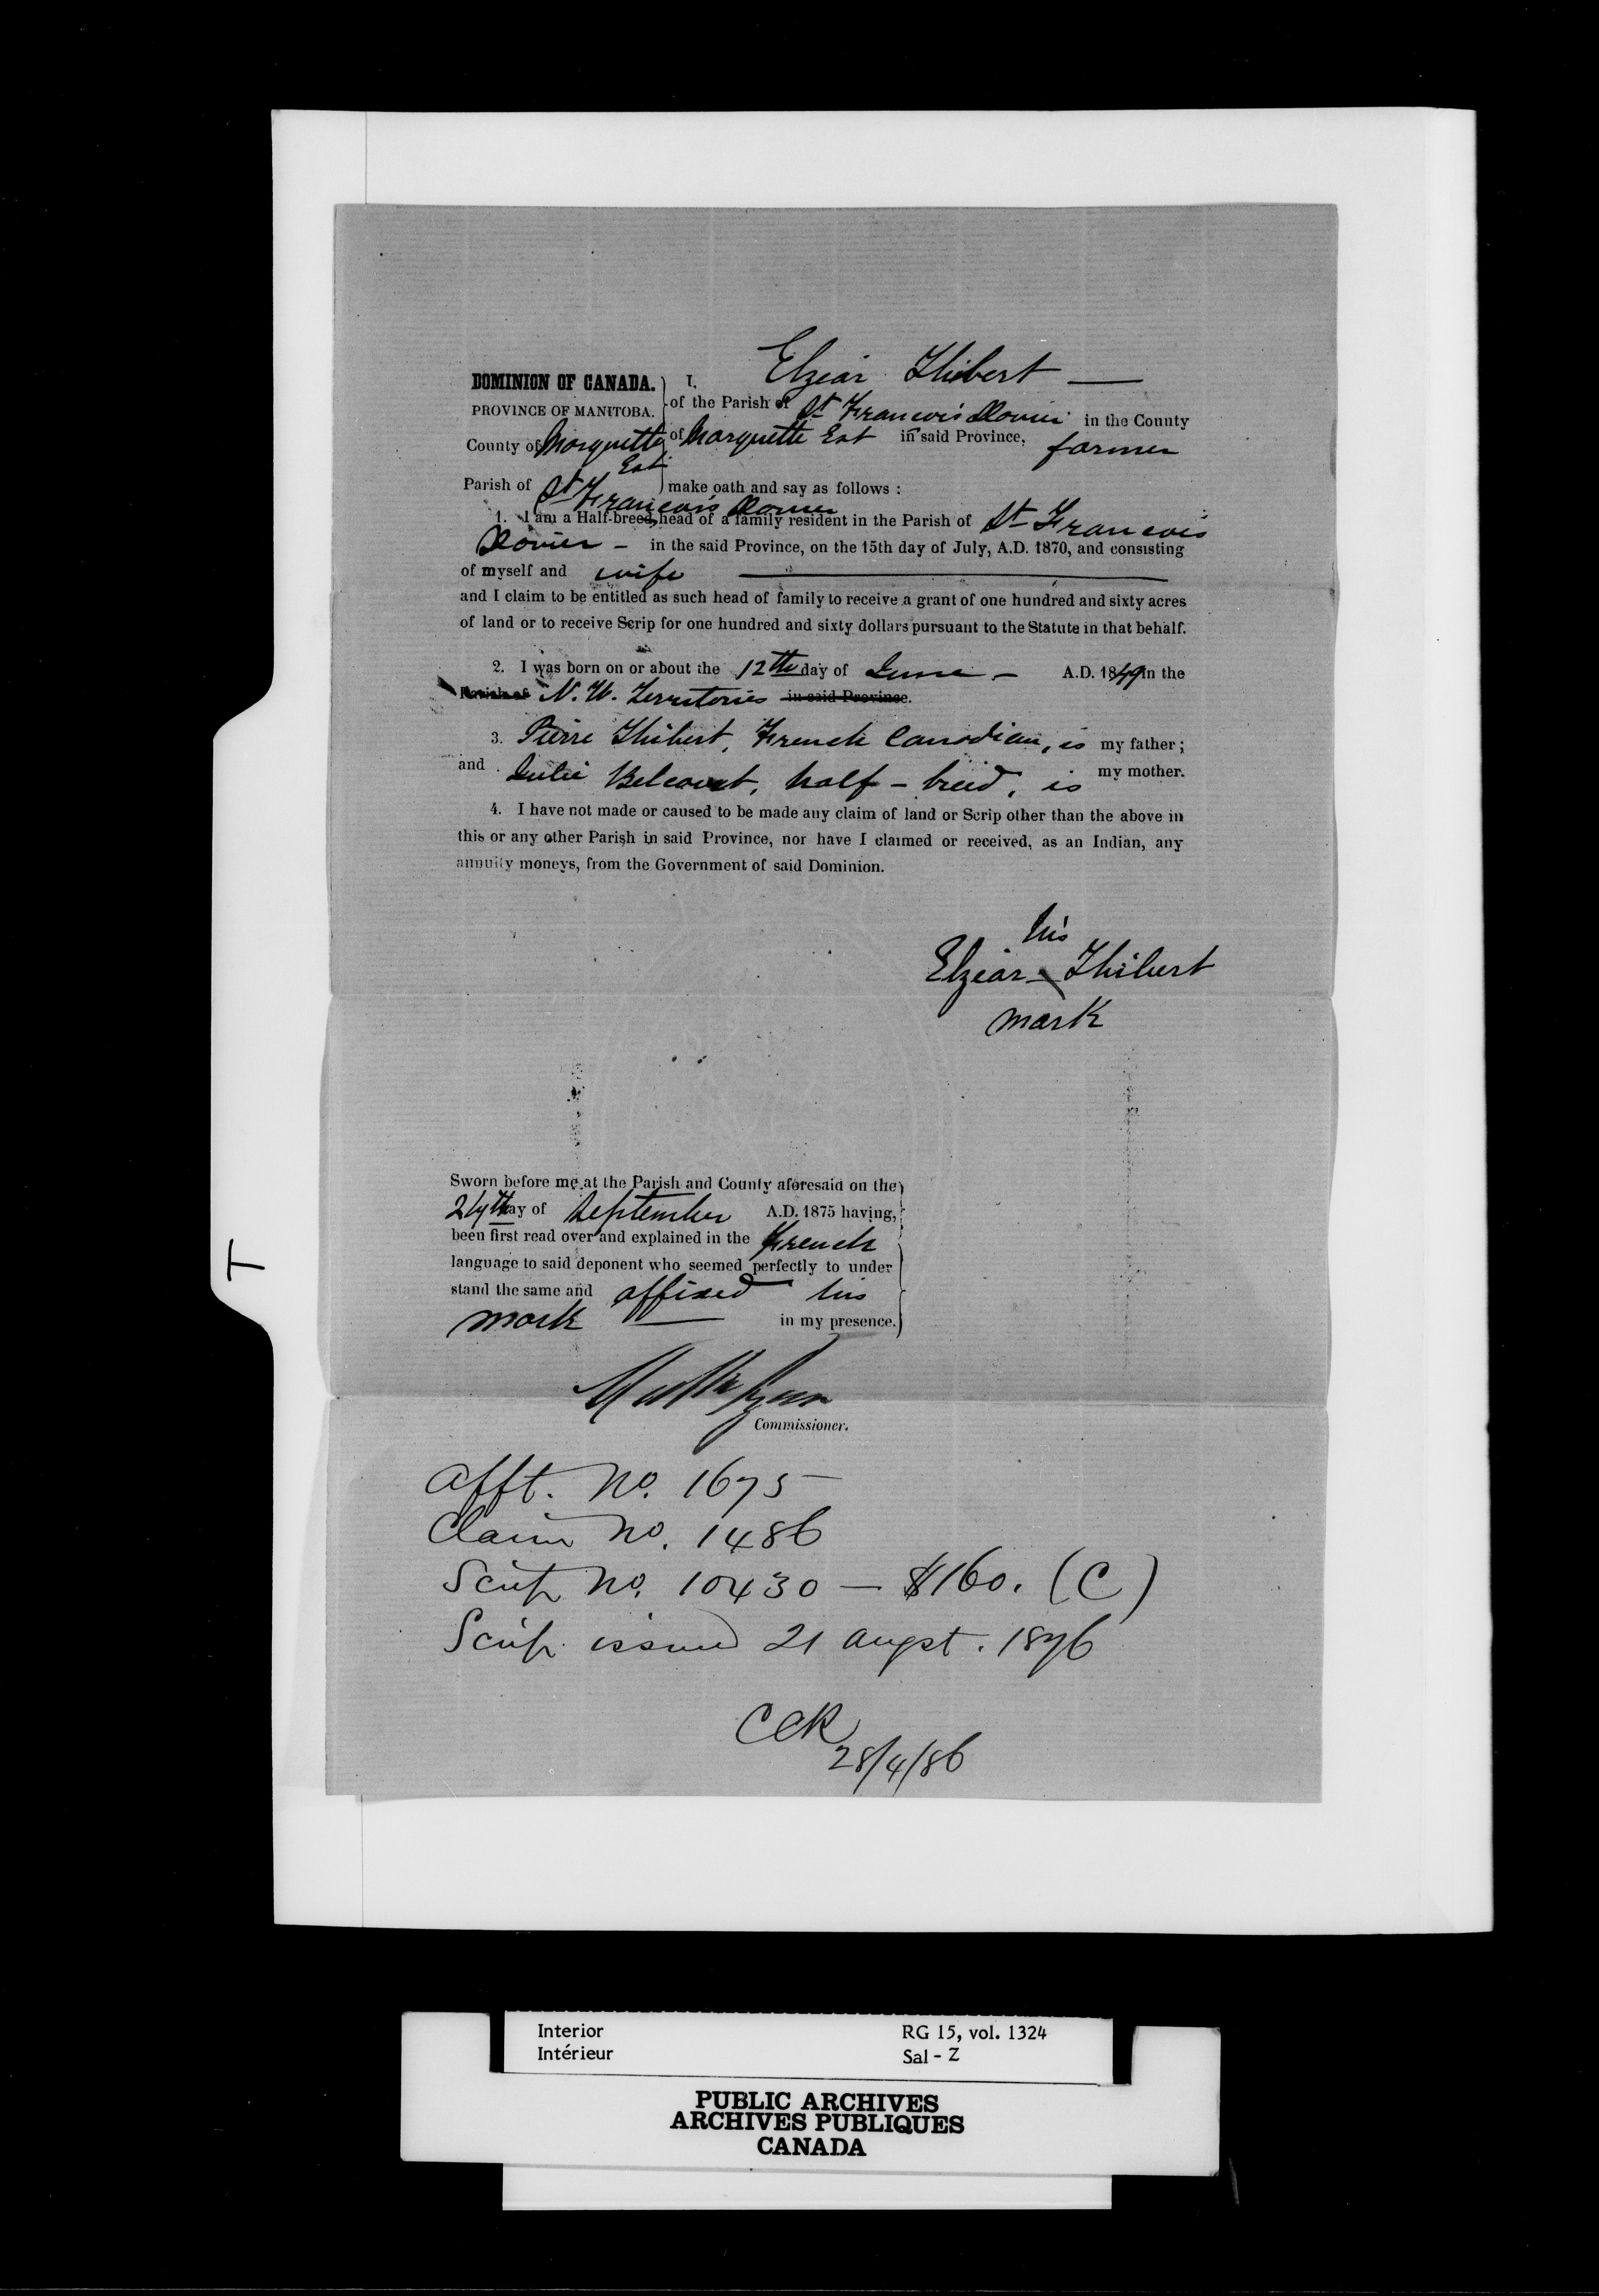 Elzéar Thibert —
DOMINION OF CANADA. I,
PROVINCE OF MANITOBA. of the Parish of St François Xavier in the County
County of Marquette East of Marquette East in said Province, farmer
Parish of St François Xavier make oath and say as follows :
1. I am a Half-breed head of a family resident in the Parish of St François
Xavier - in the said Province, on the 15th day of July, A.D. 1870, and consisting
of myself and wife ———
and I claim to be entitled as such head of family to receive a grant of one hundred and sixty acres
of land or to receive Scrip for one hundred and sixty dollars pursuant to the Statute in that behalf.
2. I was born on or about the 12th day of June - A.D. 1849 in the
Parish of N. W. Territories in said Province.
3. Pierre Thibert, French Canadian, is my father;
and Julie Belcourt, half-breed, is my mother.
4. I have not made or caused to be made any claim of land or Scrip other than the above in
this or any other Parish in said Province, nor have I claimed or received, as an Indian, any
annuity moneys, from the Government of said Dominion.
his
Elzéar X Thibert
mark
Sworn before me at the Parish and County aforesaid on the
24th day of September A.D. 1875 having,
been first read over and explained in the French
language to said deponent who seemed perfectly to under
stand the same and affixed his
mark — in my presence.
Matth Ryan
Commissioner.
Afft. No. 1675
Claim No. 1486
Scrip No. 10430 — $160. (C)
Scrip issued 21 Augst. 1876
CCR
28/4/86
T
Interior RG 15, vol. 1324
Intérieur Sal - Z
PUBLIC ARCHIVES
ARCHIVES PUBLIQUES
CANADA